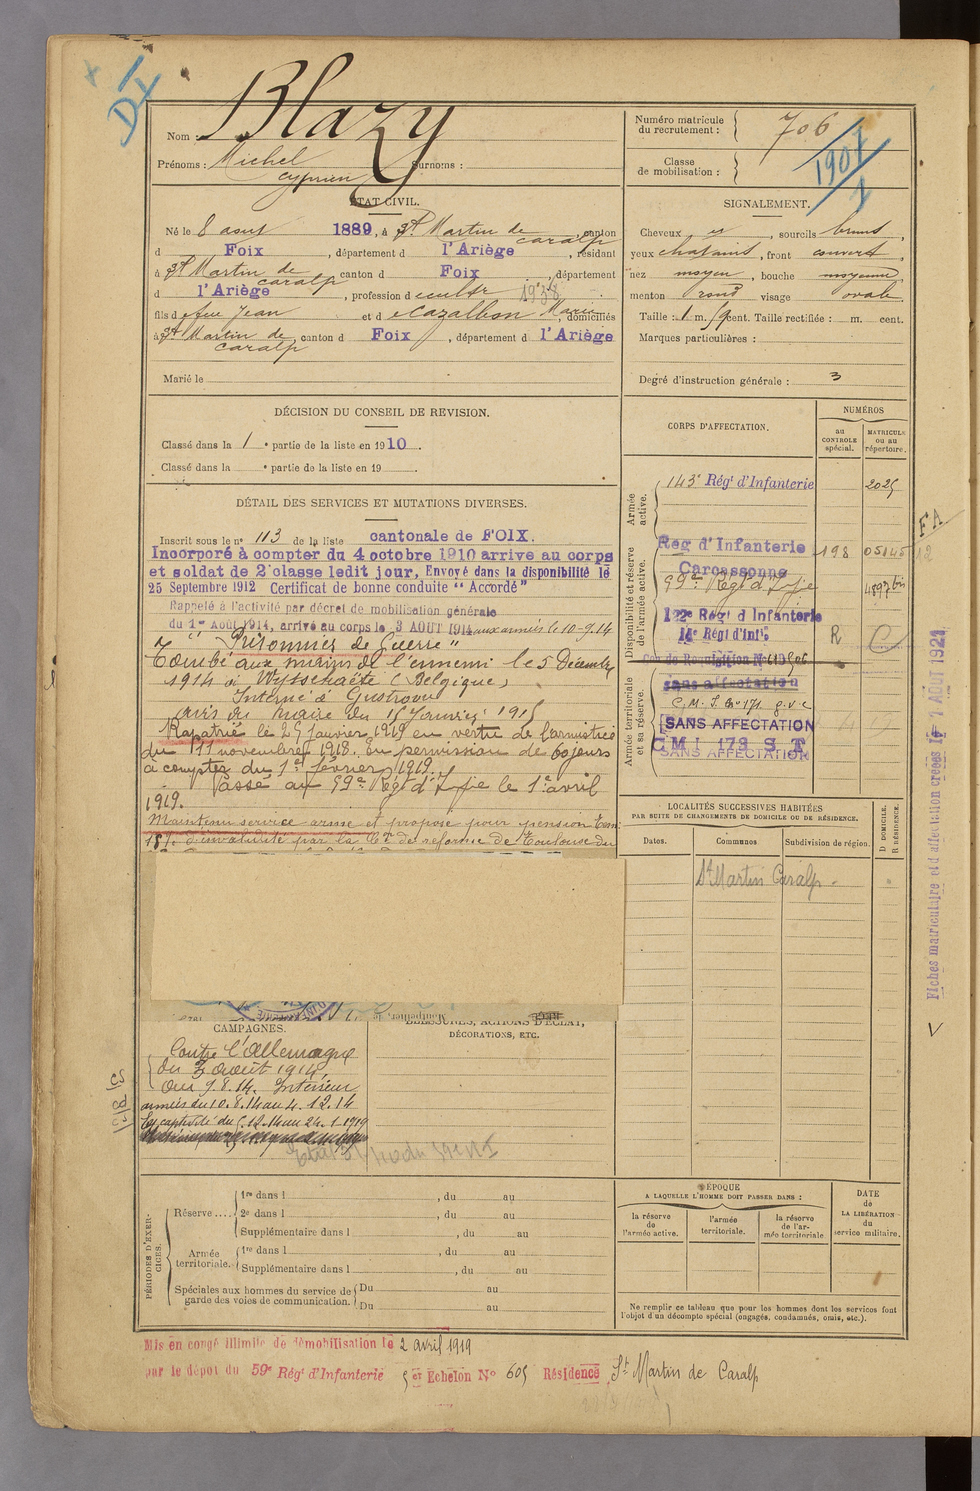 DI
Nom : Blazy
Prénoms : Michel Surnoms :
Cyprien
Numéro matricule
du recrutement : 706
Classe
de mobilisation : 1907
ÉTAT CIVIL.
Né le 8 aout 1889, à St Martin de caralp, canton
d Foix, département d l'Ariège, résidant
à St Martin de caralp, canton d Foix, département
d l'Ariège, profession d cultr 1938
fils d e feu Jean et d e Cazalbon Marie, domiciliés
à St Martin de caralp, canton d Foix, département d l'Ariège
Marié le
SIGNALEMENT.
Cheveux et, sourcils bruns,
yeux chatains, front couvert,
nez moyen, bouche moyenne
menton rond visage ovale
Taille : 1 m. 59 cent. Taille rectifiée : m. cent.
Marques particulières :
Degré d'instruction générale : 3
DÉCISION DU CONSEIL DE REVISION.
Classé dans la 1e partie de la liste en 1910.
Classé dans la e partie de la liste en 19
DÉTAIL DES SERVICES ET MUTATIONS DIVERSES.
Inscrit sous le no 113 de la liste cantonale de FOIX.
Incorporé à compter du 4 octobre 1910 arrive au corps
et soldat de 2e classe ledit jour, Envoyé dans la disponibilité le
25 Septembre 1912 Certificat de bonne conduite "Accordé"
Rappelé à l'activité par décret de mobilisation générale
du 1er Août 1914, arrivé au corps le 3 AOUT 1914 aux armées le 10-9.14
"Prisonnier de Guerre"
Tombé aux mains de l'ennemi le 5 Décembre
1914 à Wytschaëte (Belgique)
Interné à Gustrow
avis du maire du 15 Janvier 1915
Rapatrié le 25 Janvier 1919 en vertu de l'armistice
du 11 novembre 1918. En permission de 60 jours
à compter du 1er février 1919.
Passé au 59e Régt d'Ifie le 1er avril
1919.
Maintenu service armé et proposé pour pension tem
15% d'invalidité par la Con de réforme de Toulouse du
CORPS D'AFFECTATION.
NUMÉROS
au
CONTROLE
spécial.
MATRICULE
ou au
répertoire.
Armée
active.
143e Régt d'Infanterie 2025
Disponibilité et réserve
de l'armée active.
Reg d'Infanterie 198 05145
Carcassonne
59e Regt d'Ifie 4897 bis
122e Régt d'Infanterie
14e Régt d'Infie R C
Armée territoriale
et sa réserve.
sans affectation
SANS AFFECTATION
C M I 173 S T
SANS AFFECTATION
FA
12
Fiches matriculaire et d'affectation créées le 1 AOUT 1921
LOCALITÉS SUCCESSIVES HABITÉES
PAR SUITE DE CHANGEMENTS DE DOMICILE OU DE RÉSIDENCE.
D DOMICILE.
R RÉSIDENCE.
Dates. Communes Subdivision de région.
St Martin Caralp.
CAMPAGNES.
Contre l'Allemagne
du 3 août 1914
au 9.8.14. Intérieur
armées du 10.8.14 au 4.12.14
En captivité du 5.12.14 au 24.1.1919
BLESSURES, ACTIONS D'ÉCLAT,
DÉCORATIONS, ETC.
PÉRIODES D'EXERCICES.
Réserve .... 1re dans l , du au
2e dans l , du au
Supplémentaire dans l , du au
Armée
territoriale. 1re dans l , du au
Supplémentaire dans l , du au
Spéciales aux hommes du service de
garde des voies de communication. Du au
Du au
ÉPOQUE
A LAQUELLE L'HOMME DOIT PASSER DANS :
la réserve
de
l'armée active.
l'armée
territoriale.
la réserve
de l'ar-
mée territoriale
DATE
de
LA LIBÉRATION
du
service militaire.
Ne remplir ce tableau que pour les hommes dont les services font
l'objet d'un décompte spécial (engagés, condamnés, omis, etc.).
Mis en congé illimité de démobilisation le 2 avril 1919
par le dépôt du 59e Régt d'Infanterie 5e Echelon No 605 Résidence St Martin de Caralp